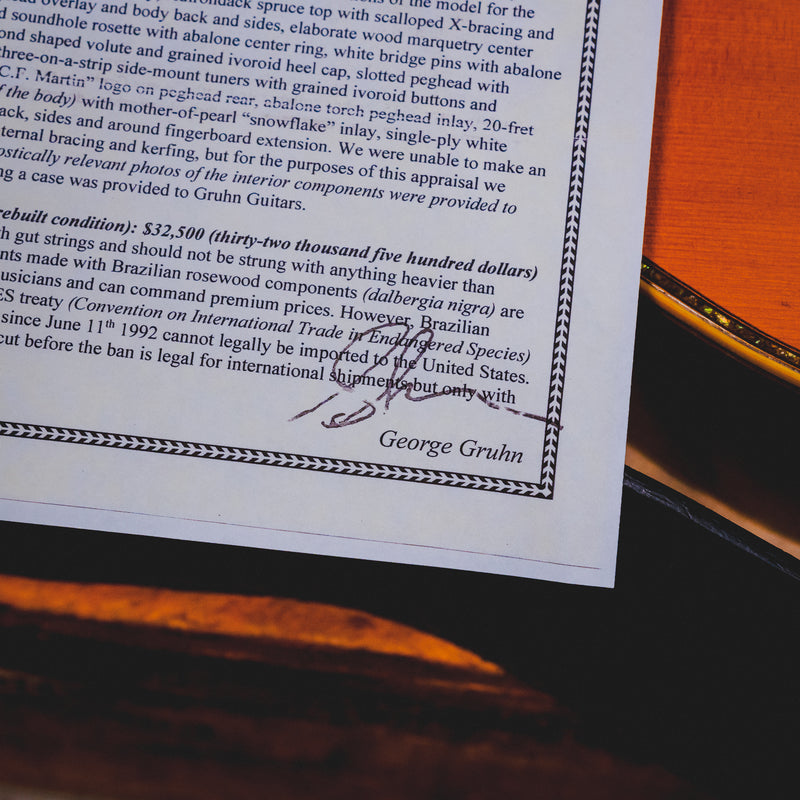 of the model for the
overlay and body back and sides, elaborate spruce top with scalloped X-bracing and
soundhole rosette with abalone center ring, wood marquetry center
shaped volute and grained ivoroid heel cap, white bridge pins with abalone
three-on-a-strip side-mount tuners with slotted peghead with
C.F. Martin" logo on peghead rear, grained ivoroid buttons and
of the body) with mother-of-pearl abalone torch peghead inlay, 20-fret
sides and around fingerboard "snowflake" inlay, single-ply white
bracing and kerfing, but for extension. We were unable to make an
relevant photos of the the purposes of this appraisal we
a case was provided to interior components were provided to
Gruhn Guitars.
rebuilt condition): $32,500 (thirty-two thousand five hundred dollars)
gut strings and should not be strung with anything heavier than
made with Brazilian rosewood components (dalbergia nigra) are
and can command premium prices. However, Brazilian
treaty (Convention on International Trade in Endangered Species)
since June 11th 1992 cannot legally be imported to the United States.
cut before the ban is legal for international shipments but only with
George Gruhn